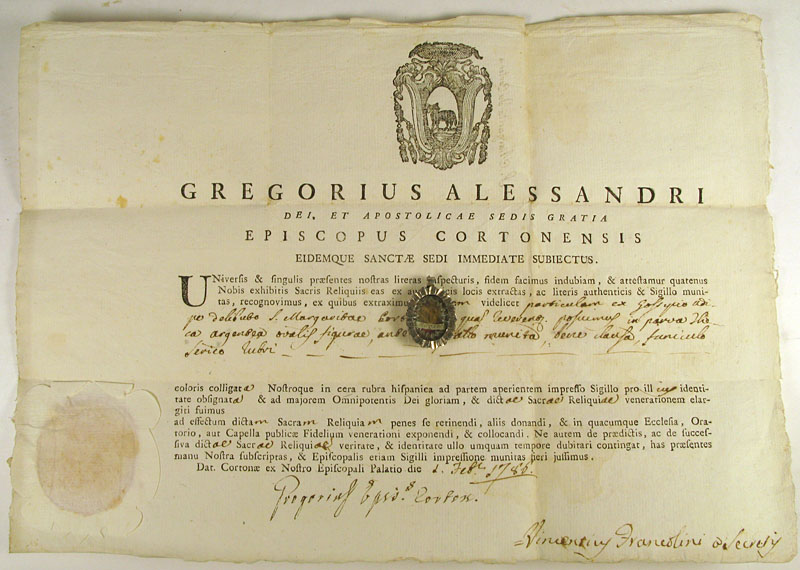 GREGORIUS ALESSANDRI
DEI, ET APOSTOLICAE SEDIS GRATIA
EPISCOPUS CORTONENSIS
EIDEMQUE SANCTÆ SEDI IMMEDIATE SUBIECTUS.
UNiversis & singulis præsentes nostras literas inspecturis, fidem facimus indubiam, & attestamur quatenus
Nobis exhibitis Sacris Reliquiis eas ex locis extractas, ac literis authenticis & Sigillo muni-
tas, recognovimus, ex quibus extraximus videlicet particulam ex Gossipio
S. Margaritae quas posuimus in parva The-
ca argentea ovalis figurae, munita, bene clausa, funiculo
serico rubri
coloris colligata Nostroque in cera rubra hispanica ad partem aperientem impresso Sigillo pro identi-
tate obsignata & ad majorem Omnipotentis Dei gloriam, & dictae Sacrae Reliquiae venerationem elar-
giti fuimus
ad effectum dictam Sacram Reliquiam penes se retinendi, aliis donandi, & in quacumque Ecclesia, Ora-
torio, aut Capella publicæ Fidelium venerationi exponendi, & collocandi. Ne autem de prædictis, ac de succes-
siva dictae Sacrae Reliquiae veritate, & identitate ullo umquam tempore dubitari contingat, has præsentes
manu Nostra subscriptas, & Episcopalis etiam Sigilli impressione munitas fieri jussimus.
Dat. Cortonæ ex Nostro Episcopali Palatio die Feb.
Gregorius Epis.s Corton.
Vincentius Francolini a Secretis